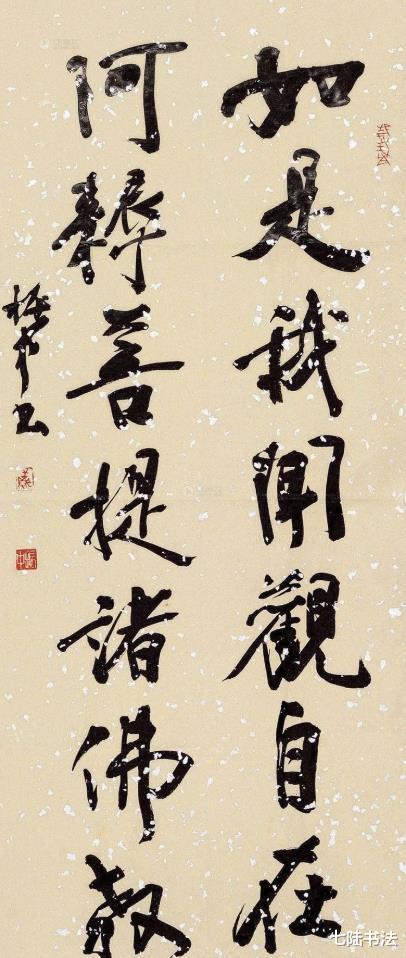 如是我聞觀自在
阿耨菩提諸佛教
七陆书法